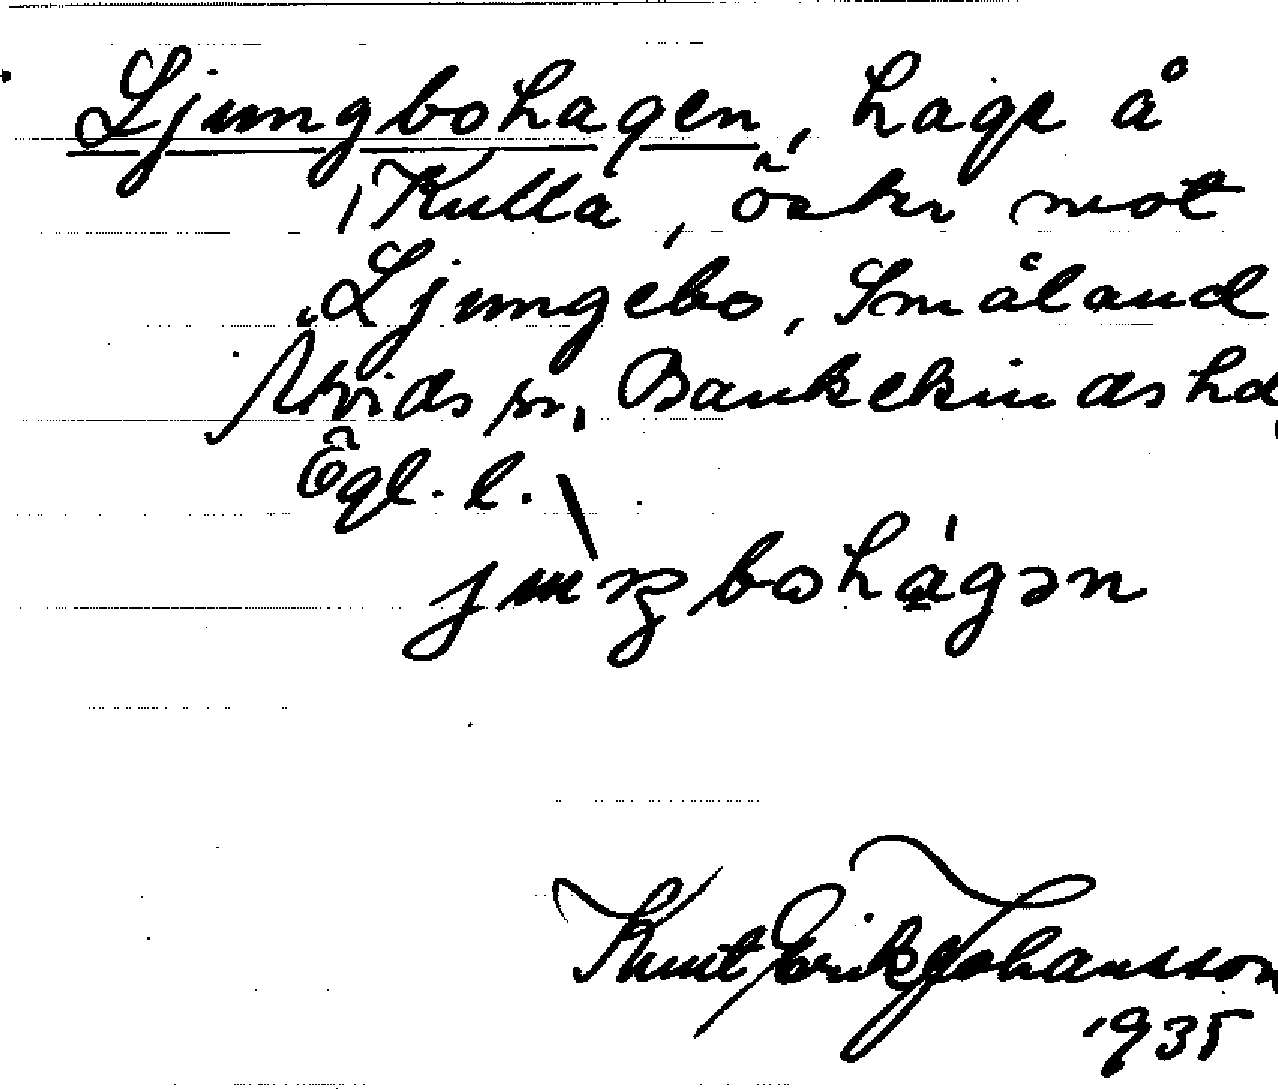 Ljungbohagen, hage å
Kulla, öster mot
Ljungebo, Småland
Atvids sn. Bankekinds hd
Ögl. l.
juŋbohagən
Knut Erik Johansson
1935